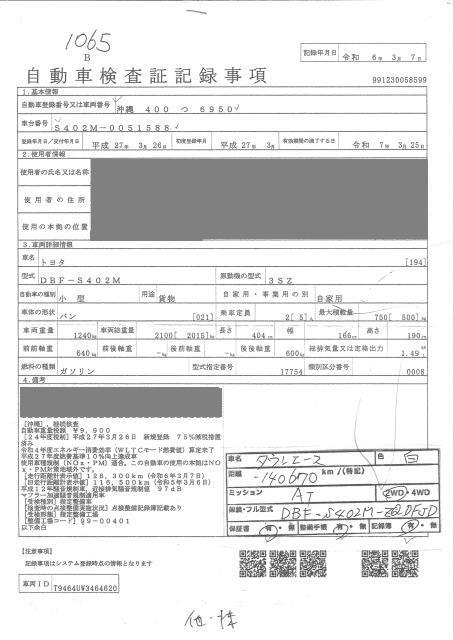 1065
B
記録年月日 令和 6年 3月 7日
自動車検査証記録事項
991230058599
1.基本情報
自動車登録番号又は車両番号 沖縄 400 つ 6950
車台番号 S402M-0051588
登録年月日/交付年月日 平成 27年 3月 26日 初度登録年月 平成 27年 3月 有効期間の満了する日 令和 7年 3月 25日
2.使用者情報
使用者の氏名又は名称
使用者の住所
使用の本拠の位置
3.車両詳細情報
車名 トヨタ [194]
型式 DBF-S402M 原動機の型式 3SZ
自動車の種別 小型 用途 貨物 自家用・事業用の別 自家用
車体の形状 バン [021] 乗車定員 2[ 5]人 最大積載量 750[ 500]kg
車両重量 1240kg 車両総重量 2100[ 2015]kg 長さ 404cm 幅 166cm 高さ 190cm
前前軸重 640kg 前後軸重 -kg 後前軸重 -kg 後後軸重 600kg 総排気量又は定格出力 1.49L
燃料の種類 ガソリン 型式指定番号 17754 類別区分番号 0008
4.備考
[沖縄], 継続検査
自動車重量税額 ¥9,900
[24年度税制]平成27年3月26日 新規登録 75%減税措置
済み
令和4年度エネルギー消費効率(WLTCモード燃費値)算定未了
平成27年度燃費基準10%向上達成車
使用車種規制(NOx・PM)適合。この自動車の使用の本拠はNO
x・PM対策地域外です。
[走行距離計表示値]126,300km(令和6年3月7日)
[旧走行距離計表示値]116,500km(令和5年3月6日)
平成12年騒音規制車、近接排気騒音規制値 97dB
マフラー加速騒音規制適用車
[受検種別]指定整備車
[検査時の点検整備実施状況]点検整備記録簿記載あり
[受検形態]指定整備工場
[整備工場コード]Q9-00401
以下余白
車名 タウンエース 色 白
距離 140670 km/(特記)
ミッション AT 2WD・4WD
車両・フル型式 DBF-S402M-
保証書 有・無 整備手帳 有・無 記録簿 有・無
[注意事項]
記録事項はシステム登録時点の情報となります
車両ID T9464UW3464620